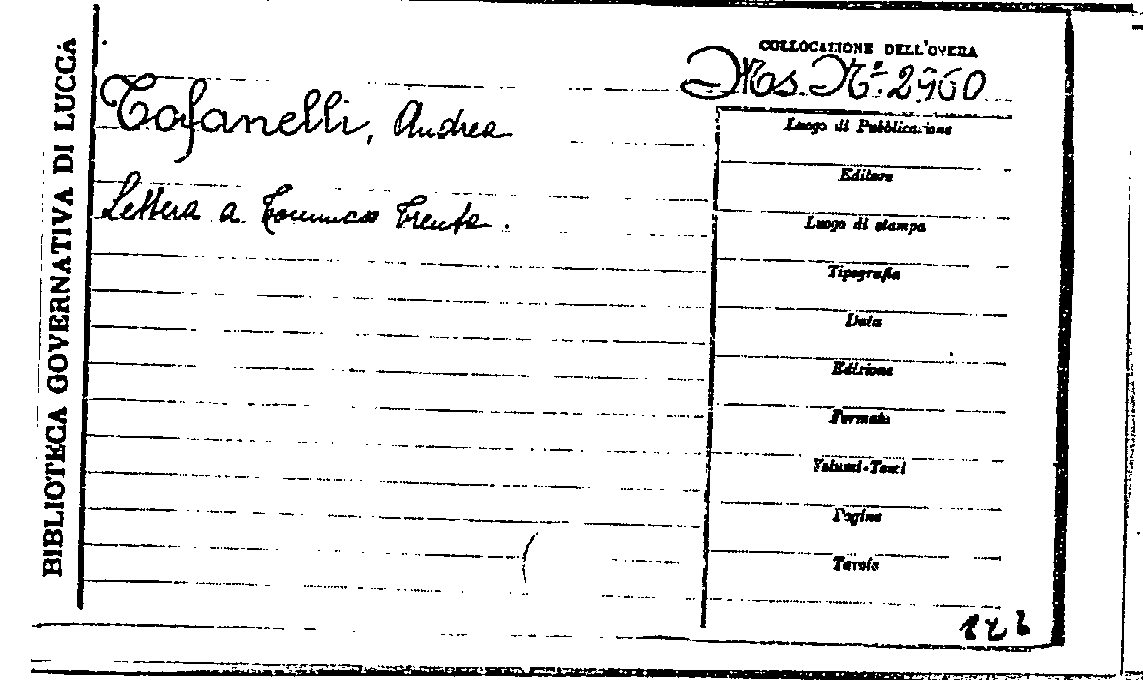 BIBLIOTECA GOVERNATIVA DI LUCCA
COLLOCAZIONE DELL'OPERA
Ms. N.º 2960
Tofanelli, Andrea
Lettera a Tommaso Trenta.
Luogo di Pubblicazione
Editore
Luogo di stampa
Tipografia
Data
Edizione
Formato
Volumi-Tomi
Pagine
Tavole